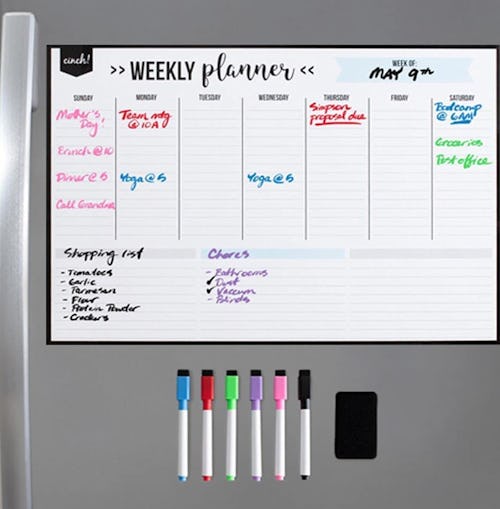 cinch!
>> WEEKLY planner <<
WEEK OF:
MAY 9TH
SUNDAY MONDAY TUESDAY WEDNESDAY THURSDAY FRIDAY SATURDAY
Mother's Day!
Brunch @ 10
Dinner @ 5
Call Grandma
Team mtg
@ 10A
Yoga @ 5
Yoga @ 5
Simpson
proposal due
Bootcamp
@ 6AM
Groceries
Post office
Shopping list
- Tomatoes
- Garlic
- Parmesan
- Flour
- Protein Powder
- Crackers
Chores
- Bathrooms
✓ Dust
✓ Vacuum
- Blinds